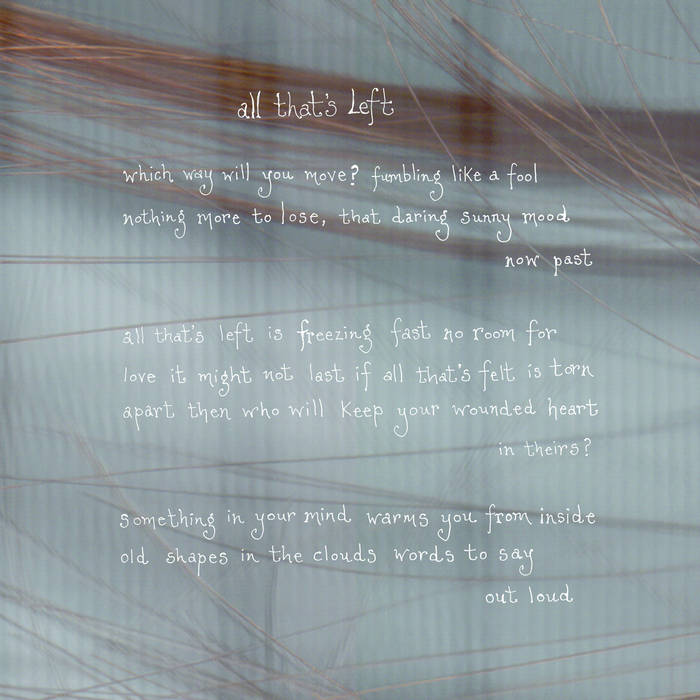 all that's left
which way will you move? fumbling like a fool
nothing more to lose, that daring sunny mood
now past
all that's left is freezing fast no room for
love it might not last if all that's felt is torn
apart then who will keep your wounded heart
in theirs?
something in your mind warms you from inside
old shapes in the clouds words to say
out loud